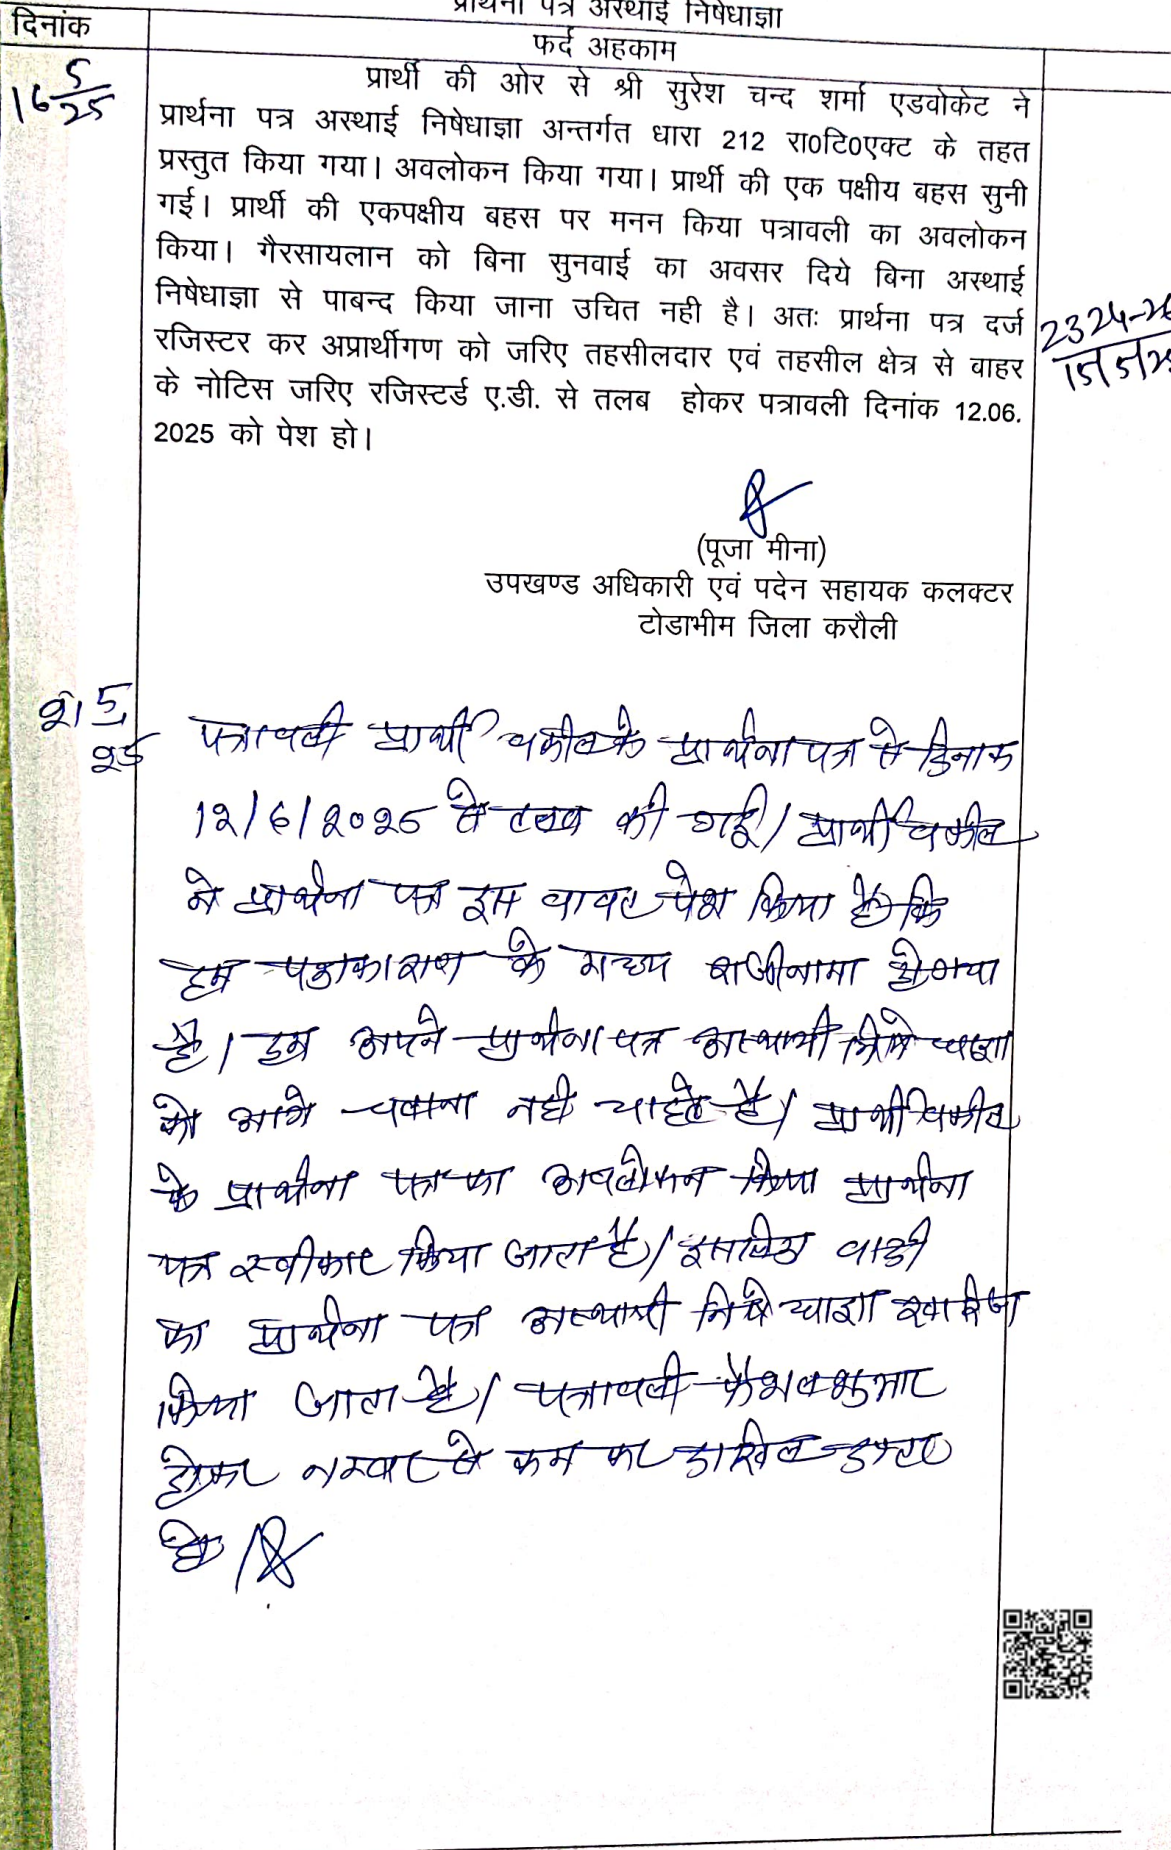 प्रार्थना पत्र अस्थाई निषेधाज्ञा
दिनांक
फर्द अहकाम
16 5/25
प्रार्थी की ओर से श्री सुरेश चन्द शर्मा एडवोकेट ने
प्रार्थना पत्र अस्थाई निषेधाज्ञा अन्तर्गत धारा 212 रा0टि0एक्ट के तहत
प्रस्तुत किया गया। अवलोकन किया गया। प्रार्थी की एक पक्षीय बहस सुनी
गई। प्रार्थी की एकपक्षीय बहस पर मनन किया पत्रावली का अवलोकन
किया। गैरसायलान को बिना सुनवाई का अवसर दिये बिना अस्थाई
निषेधाज्ञा से पाबन्द किया जाना उचित नही है। अतः प्रार्थना पत्र दर्ज
रजिस्टर कर अप्रार्थीगण को जरिए तहसीलदार एवं तहसील क्षेत्र से वाहर
के नोटिस जरिए रजिस्टर्ड ए.डी. से तलब होकर पत्रावली दिनांक 12.06.
2025 को पेश हो।
2324-26
15/5/25
(पूजा मीना)
उपखण्ड अधिकारी एवं पदेन सहायक कलक्टर
टोडाभीम जिला करौली
२१ 5/२5
पत्रावली प्रार्थी वकील के प्रार्थना पत्र से दिनांक
1२/6/२०२5 से तलब की गई/ प्रार्थी वकील
ने प्रार्थना पत्र इस वावत पेश किया है कि
हम पक्षकारान के मध्य राजीनामा हो गया
है/ हम अपने प्रार्थना पत्र अस्थायी निषेधाज्ञा
को आगे चलाना नही चाहते है/ प्रार्थी वकील
के प्रार्थना पत्र का अवलोकन किया प्रार्थना
पत्र स्वीकार किया जाता है/ इसलिए वादी
का प्रार्थना पत्र अस्थायी निषेधाज्ञा खारिज
किया जाता है/ पत्रावली फैशल शुमार
होकर नम्बर से कम कर दाखिल दफ्तर
हो/